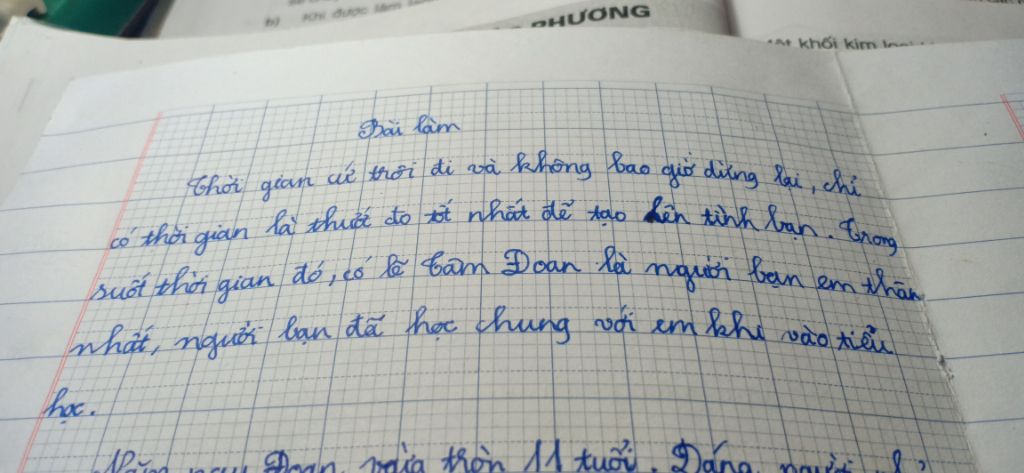 b) Khi được làm
PHƯƠNG
khối kim loại
Bài làm
Thời gian cứ trôi đi và không bao giờ dừng lại, chỉ
có thời gian là thước đo tốt nhất để tạo lên tình bạn. Trong
suốt thời gian đó, có lẽ Tâm Đoan là người bạn em thân
nhất, người bạn đã học chung với em khi vào tiểu
học.
Năm nay Đoan vừa tròn 11 tuổi. Dáng người